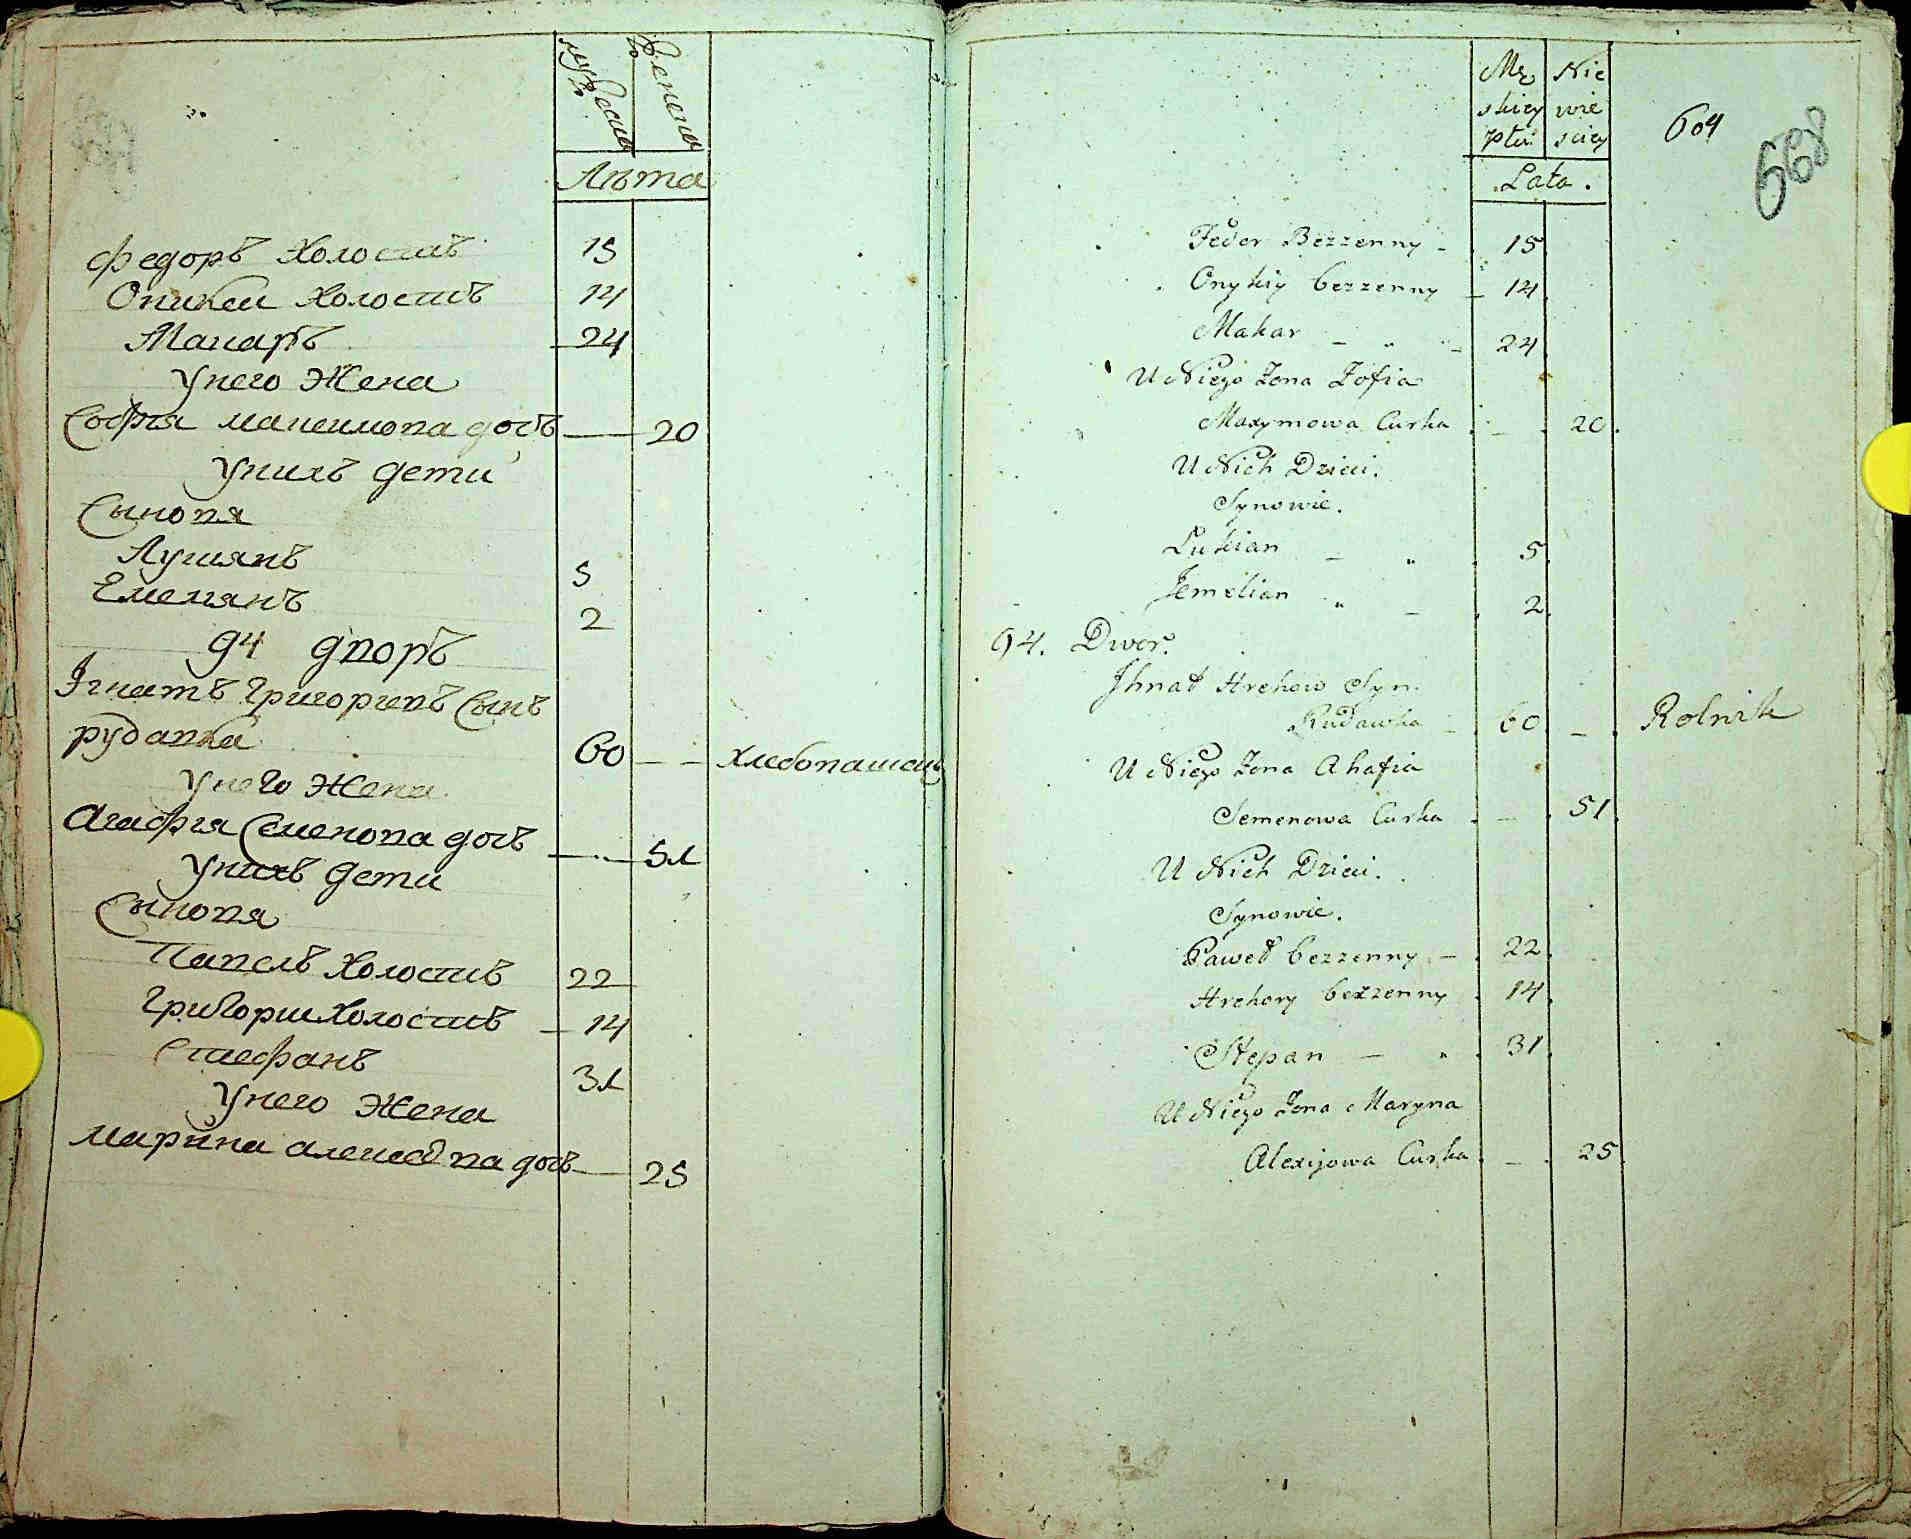 мужеска
женска
Лѣта
Федоръ Холостъ 15
Оникеи Холостъ 14
Макаръ 24
Унего Жена
Софья максимова дочъ — 20
Унихъ дети
Сыновя
Лукиянъ 5
Емелиянъ 2
94 дворъ
Ігнатъ Григориевъ Сынъ
рудавка 60 — — Хлебопашецъ
Унего Жена
Агафья Семенова дочъ — 51
Унихъ дети
Сыновя
Павелъ Холостъ 22
Григории Холостъ 14
Стефанъ 31
Унего Жена
марина алексеева дочъ — 25
Mę Nie
skiey wie
płci sciey
604
668
Lata.
Fedor Bezzenny - 15
Onykiy bezzenny - 14
Makar - " - 24
U Niego Zona Zofia
Maxymowa Curka - 20.
U Nich Dzieci.
Synowie.
Lukian - " 5
Jemelian " - 2
94. Dwor.
Ihnat Hrehow Syn.
Rudawka - 60 - Rolnik
U Niego Zona Ahafia
Semenowa Curka - 51
U Nich Dzieci.
Synowie.
Paweł bezzenny - 22
Hrehory bezzenny 14
Stepan - " 31
U Niego Zona Maryna
Alexijowa Curka - 25